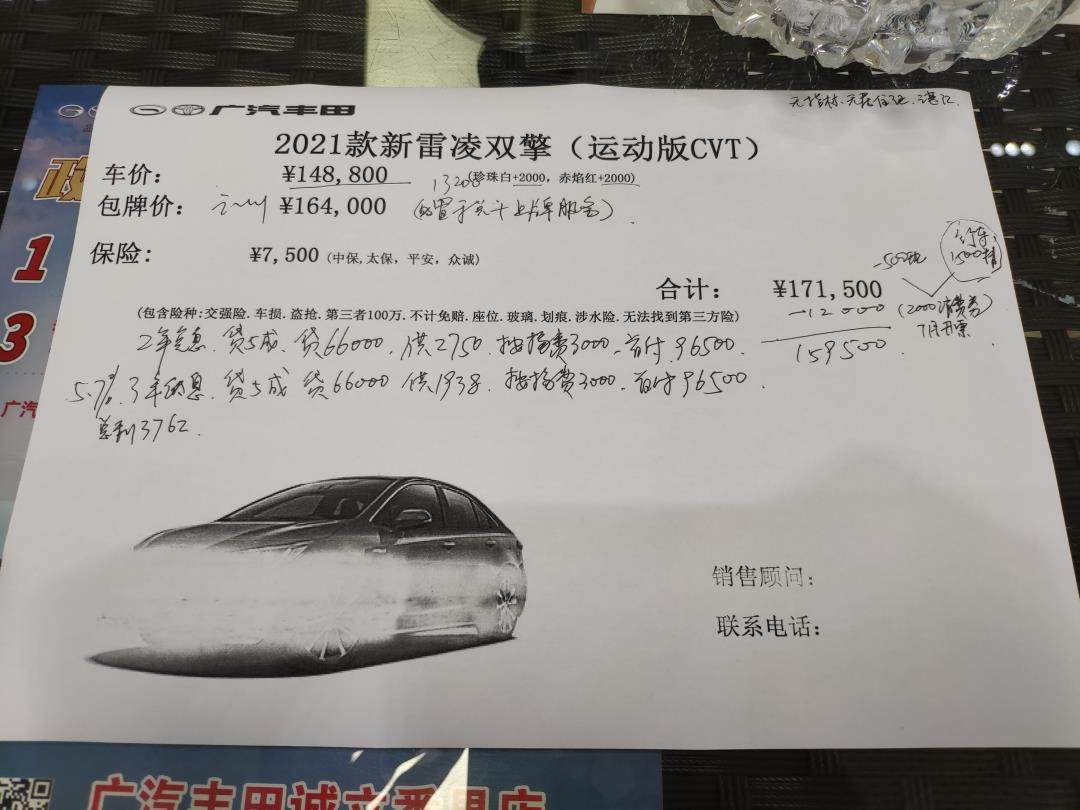 广汽丰田
2021款新雷凌双擎（运动版CVT）
车价： ¥148,800 (珍珠白+2000，赤焰红+2000)
包牌价： ¥164,000
保险： ¥7,500 (中保,太保，平安，众诚)
合计： ¥171,500
-12000
159500
(2000消费券
7月开票
(包含险种:交强险.车损.盗抢.第三者100万.不计免赔.座位.玻璃.划痕.涉水险.无法找到第三方险)
2年免息 贷5成 贷66000 供2750 按揭费3000 首付96500
5.7% 3年 息 贷5成 贷66000 供1938 按揭费3000 首付96500
总利3762
销售顾问：
联系电话：
1
3
广汽
广汽丰田诚立番禺店